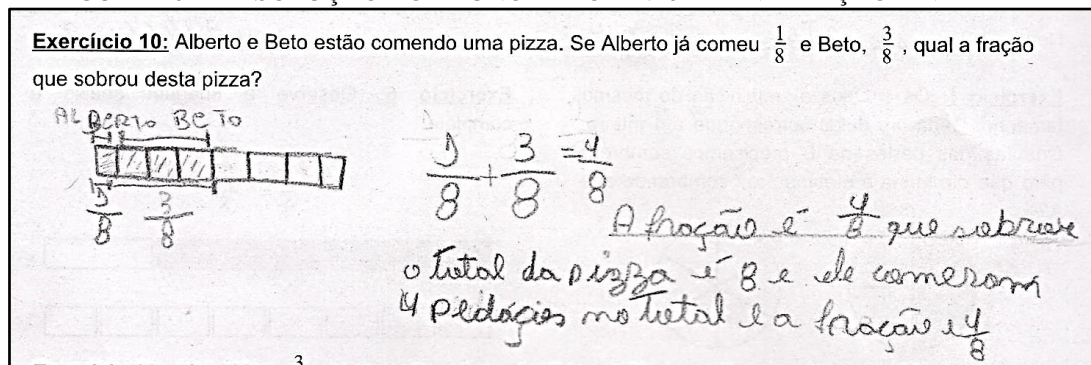 Exercíicio 10: Alberto e Beto estão comendo uma pizza. Se Alberto já comeu 1/8 e Beto, 3/8, qual a fração
que sobrou desta pizza?
ALBERTO BETO
1/8 3/8
1/8 + 3/8 = 4/8
A fração é 4/8 que sobrare
o total da pizza é 8 e ele comeram
4 pedácios no total e a fração é 4/8